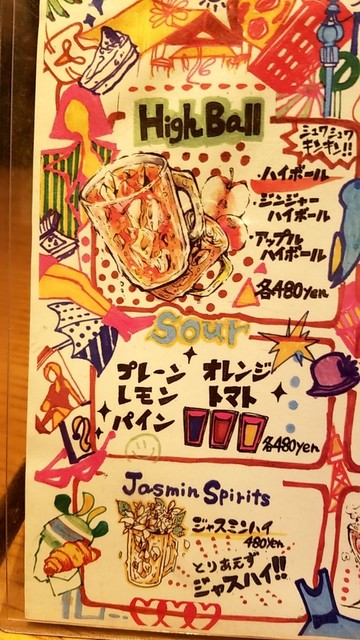 High Ball
シュワシュワ
キンキン!!
・ハイボール
・ジンジャー
ハイボール
・アップル
ハイボール
各480yen
Sour
プレーン オレンジ
レモン トマト
パイン
各480yen
Jasmin Spirits
ジャスミンハイ
480yen
とりあえず
ジャスハイ!!